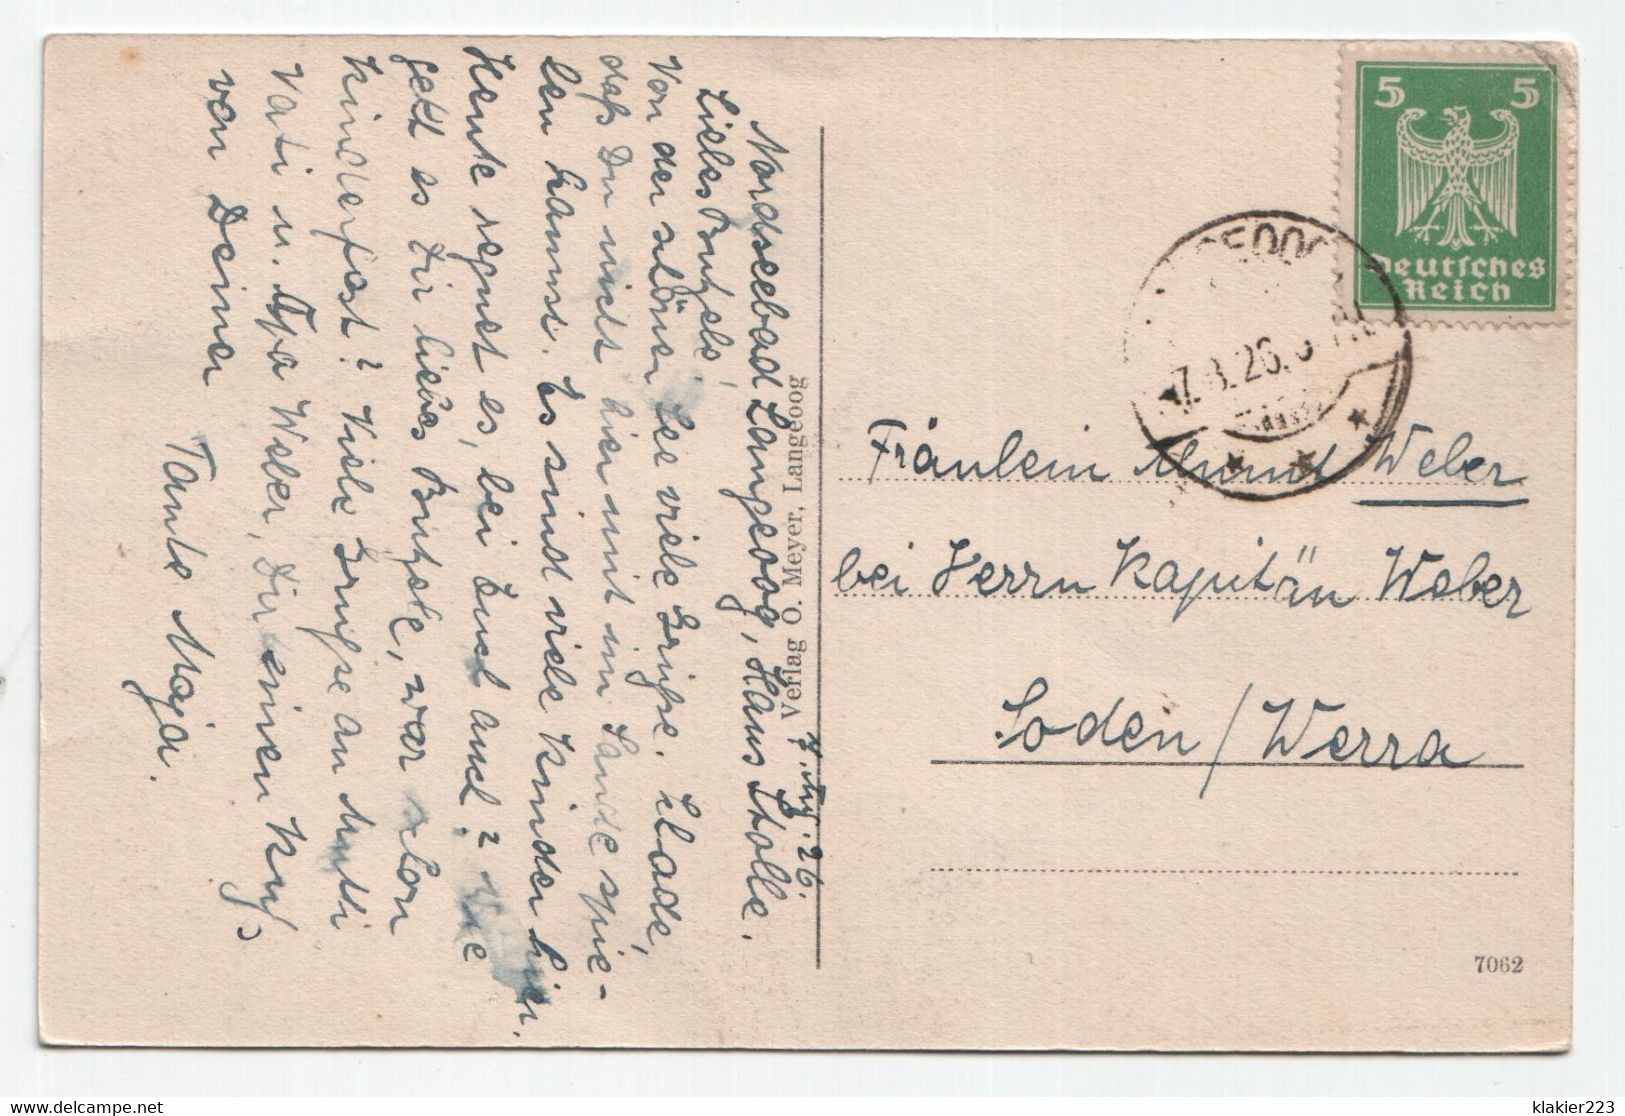 Nordseebad Langeoog, Haus Stolle.
7. Aug. 26.
Liebes Butzele!
Von der schönen See viele Grüße. Schade,
daß Du nicht hier mit im Sande spie-
len kannst. Es sind viele Kinder hier.
Heute regnet es, bei Euch auch? Wie
geht es Dir liebes Butzele, war schon
Kinderfest? Viele Grüße an Mutti
Vati u. Opa Weber, Dir einen Kuß
von Deiner
Tante Maja.
Verlag O. Meyer, Langeoog
5 5
Deutsches
Reich
7.8.26.
Fräulein Weber
bei Herrn Kapitän Weber
Soden / Werra
7062
klakier223